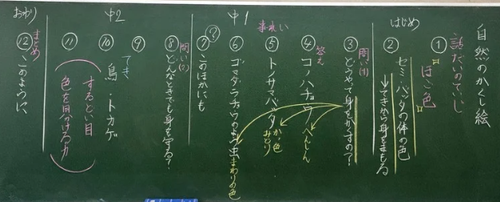 自然のかくし絵
はじめ
話だいのていじ
①
ほご色
②
セミ・バッタの体の色
→てきから身をまもる
中1
問い(1)
③
どうやって身をかくすの?
答え
④
コノハチョウ
へんしん
⑤
トノサマバッタ
かっ色
みどり
⑥
ゴマダラチョウのよう虫
まわりの色
⑦
このほかにも
中2
問い(2)
⑧
どんなときでも身を守る?
⑨
てき
⑩
鳥・トカゲ
⑪
するどい目
色を見分ける力
おわり
まとめ
⑫
このように